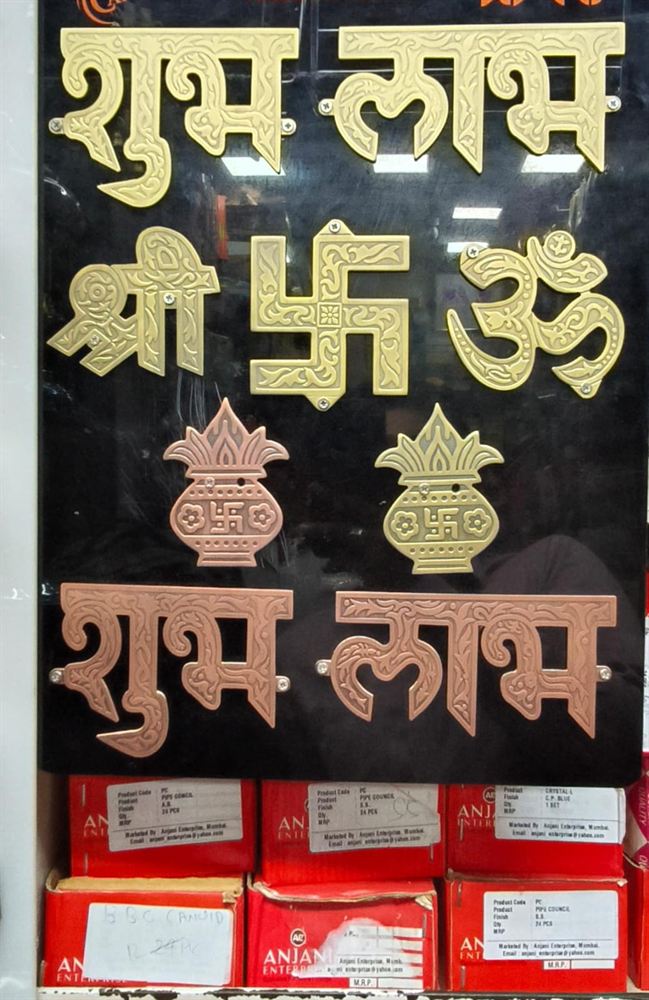 शुभ लाभ
श्री 卐 ॐ
卐 卐
शुभ लाभ
Product Code : PC
Product : PIPE COUNCIL
Finish : A.B.
Qty : 24 PCS
MRP
Marketed By : Anjani Enterprise, Mumbai.
Email : anjani_enterprise@yahoo.com
Product Code : PC
Product : PIPE COUNCIL
Finish : S.S.
Qty : 24 PCS
MRP
Marketed By : Anjani Enterprise, Mumbai.
Email : anjani_enterprise@yahoo.com
Product : CRYSTAL-L
Finish : C.P. BLUE
Qty : 1 SET
MRP
Marketed By : Anjani Enterprise, Mumbai.
Email : anjani_enterprise@yahoo.com
AE
ANJANI
ENTERPR
Enterprise, Mumbai.
anjani_enterprise@yahoo.com
M.R.P.
Product Code : PC
Product : PIPE COUNCIL
Finish : S.S.
Qty : 24 PCS
MRP
Marketed By : Anjani Enterprise, Mumbai.
Email : anjani_enterprise@yahoo.com
M.R.P.